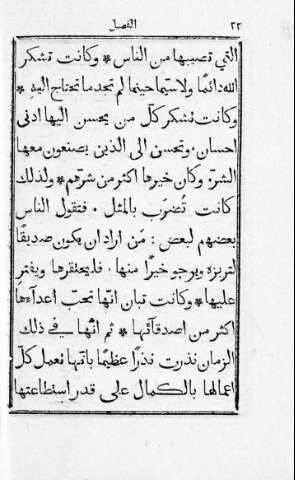 ٢٢ الفصل
التي تصيبها من الناس * وكانت تشكر
الله دائمًا ولا سيما حينما لم تجد ما تحتاج اليه *
وكانت تشكر كلّ من يحسن اليها ادنى
احسان. وتحسن الى الذين يصنعون معها
الشرّ * وكان خيرها اكثر من شرّهم * ولذلك
كانت تُضرَب بالمثل. فتقول الناس
بعضهم لبعض: مَن اراد ان يكون صديقًا
لتريزه ويرجو خيرًا منها. فليحتقرها ويفترِ
عليها * وكانت تبان انّها تحبّ اعدآءَها
اكثر من اصدقآئها * ثم انّها في ذلك
الزمان نذرت نذرًا عظيمًا بانّها تعمل كلّ
اعمالها بالكمال على قدر استطاعتها